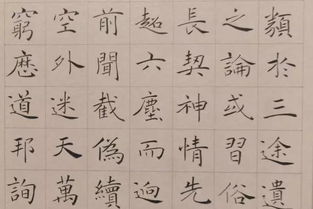 類於三途遺
之論或習俗
長契神情先
超六塵而迥
前聞截偽續
空外迷天萬
窮歷道邦詢